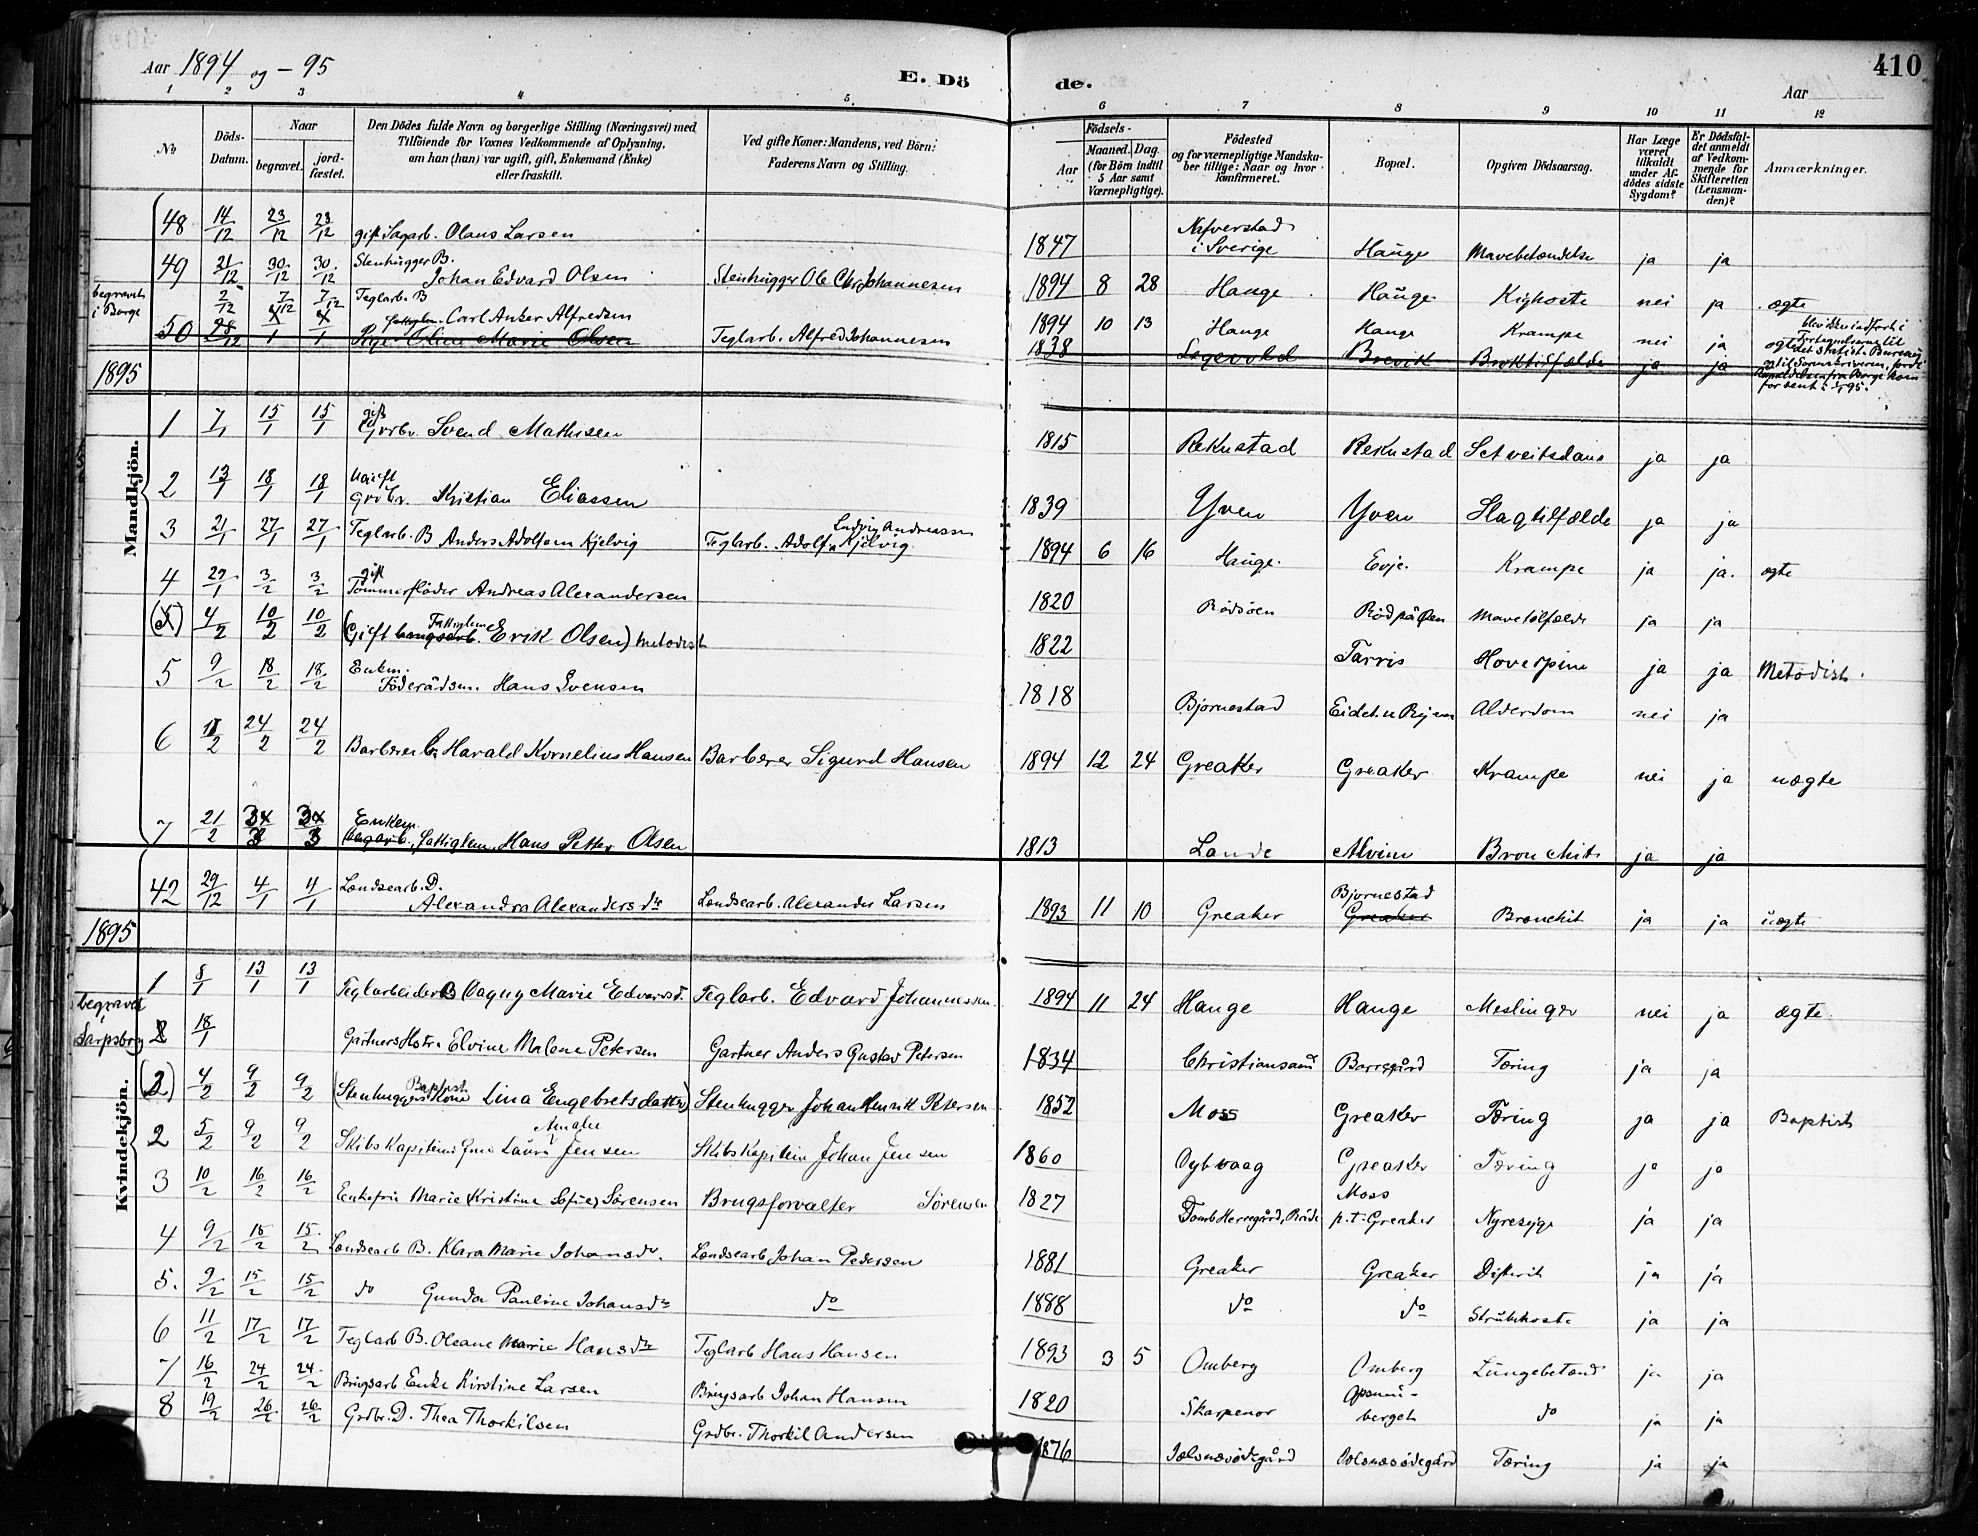 Aar 1894 og - 95
E. Dö de.
410
Aar
1 2 3 4 5 6 7 8 9 10 11 12
No
Döds-Datum.
Naar
begravet.
jord-fæstet.
Den Dödes fulde Navn og borgerlige Stilling (Næringsvei) med
Tilföiende for Voxnes Vedkommende af Oplysning,
om han (hun) var ugift, gift, Enkemand (Enke)
eller fraskilt.
Ved gifte Koner: Mandens, ved Börn:
Faderens Navn og Stilling.
Födsels-
Aar
Maaned. Dag.
(for Börn indtil
5 Aar samt
Værnepligtige).
Födested
og for værnepligtige Mandska-
ber tillige: Naar og hvor
konfirmeret.
Bopæl.
Opgiven Dödsaarsag.
Har Læge
været
tilkaldt
under Af-
dödes sidste
Sygdom?
Er Dödsfal-
det anmeldt
af Vedkom-
mende for
Skifteretten
(Lensman-
den)?
Anmærkninger.
48 14/12 23/12 23/12 gift Sagarb. Olaus Larsen 1847 Nafverstad i Sverige Hauge Mavebetændelse ja ja
49 21/12 30/12 30/12 Stenhugger B. Johan Edvard Olsen Stenhugger Ole Chr. Johannesen 1894 8 28 Hauge Hauge Kighoste nei ja ægte
begravet i Borge 2/12 7/12 7/12 Teglarb. B Carl Anker Alfredsen Teglarb. Alfred Johannesen 1894 10 13 Hauge Hauge Krampe nei ja ægte
50 28/12 Pige Oline Marie Olsen 1838 Brevik ja ja
1895
Mandkjön.
1 7/1 15/1 15/1 gift Grdbr. Svend Mathisen 1815 Rekustad Rekustad Sctveitsdans ja ja
2 13/1 18/1 18/1 Ugift Grdbr. Kristian Eliassen 1839 Yven Yven Slagtilfælde ja ja
3 21/1 27/1 27/1 Teglarb. B Anders Adolfsen Kjelvig Teglarb. Adolf Ludvig Andreassen Kjelvig. 1894 6 16 Hauge. Evje. Krampe ja ja. ægte
4 29/1 3/2 3/2 gift Tømmerfløder Andreas Alexandersen 1820 Rødsøen Mavetilfælde ja ja
(5) 4/2 10/2 10/2 (Gift Fattiglem Erik Olsen) Metodist 1822 Tarris ja ja Metodist.
5 9/2 18/2 18/2 Enkm. Föderådsm. Hans Svensen 1818 Bjørnestad Alderdom nei ja
6 18/2 24/2 24/2 Barberer B. Harald Kornelius Hansen Barberer Sigurd Hansen 1894 12 24 Greaker Greaker Krampe nei ja uægte
7 21/2 3/3 3/3 Enkem. Fattiglem. Hans Petter Olsen 1813 Lande Alvim Bronchit ja ja
42 29/12 4/1 4/1 Lændsearb. D. Alexandra Alexandersdtr Lændsearb. Alexander Larsen 1893 11 10 Greaker Bjørnestad Greaker Bronchit ja ja uægte
1895
Kvindekjön.
1 8/1 13/1 13/1 Teglarbeider B Dagny Marie Edvardsd. Teglarb. Edvard Johannessen. 1894 11 24 Hauge Hauge Meslinger nei ja ægte.
begravet i Sarpsborg 2 18/1 Gartners Hstr. Elvine Malene Petersen Gartner Anders Gustav Petersen 1834 Christianssand Borregård Tæring ja ja
(2) 4/2 9/2 9/2 (Stenhuggers Kone Baptist Lina Engebretsdatter) Stenhugger Johan Henrik Petersen 1852 Moss Greaker Tæring ja ja Baptist
2 5/2 9/2 9/2 Skibskapteins Laura Amalie Jensen Skibskaptein Johan Jensen 1860 Dybvaag Greaker Tæring ja ja
3 10/2 16/2 16/2 Enkefru Marie (Kristine Sofie) Sørensen Brugsforvalter Sørensen 1827 Tomb Herregård, Råde Moss p.t. Greaker Nyresyge ja ja
4 9/2 15/2 15/2 Lændsearb B. Klara Marie Johansdr. Lændsearb Johan Pedersen 1881 Greaker Greaker Difterit ja ja
5. 9/2 15/2 15/2 do Gunda Pauline Johansdtr do 1888 do do Strubehoste ja ja
6 11/2 17/2 17/2 Teglarb B. Oleane Marie Hansdtr Teglarb Hans Hansen 1893 3 5 Omberg Omberg Lungebetænd ja ja
7 16/2 24/2 24/2 Brugsarb Enke Kirstine Larsen Brugsarb Johan Hansen 1820 Skarpenor Opsund-berget do ja ja
8 19/2 26/2 26/2 Grdbr. D. Thea Thorkilsen Grdbr. Thorkil Andersen 1876 Tæring ja ja